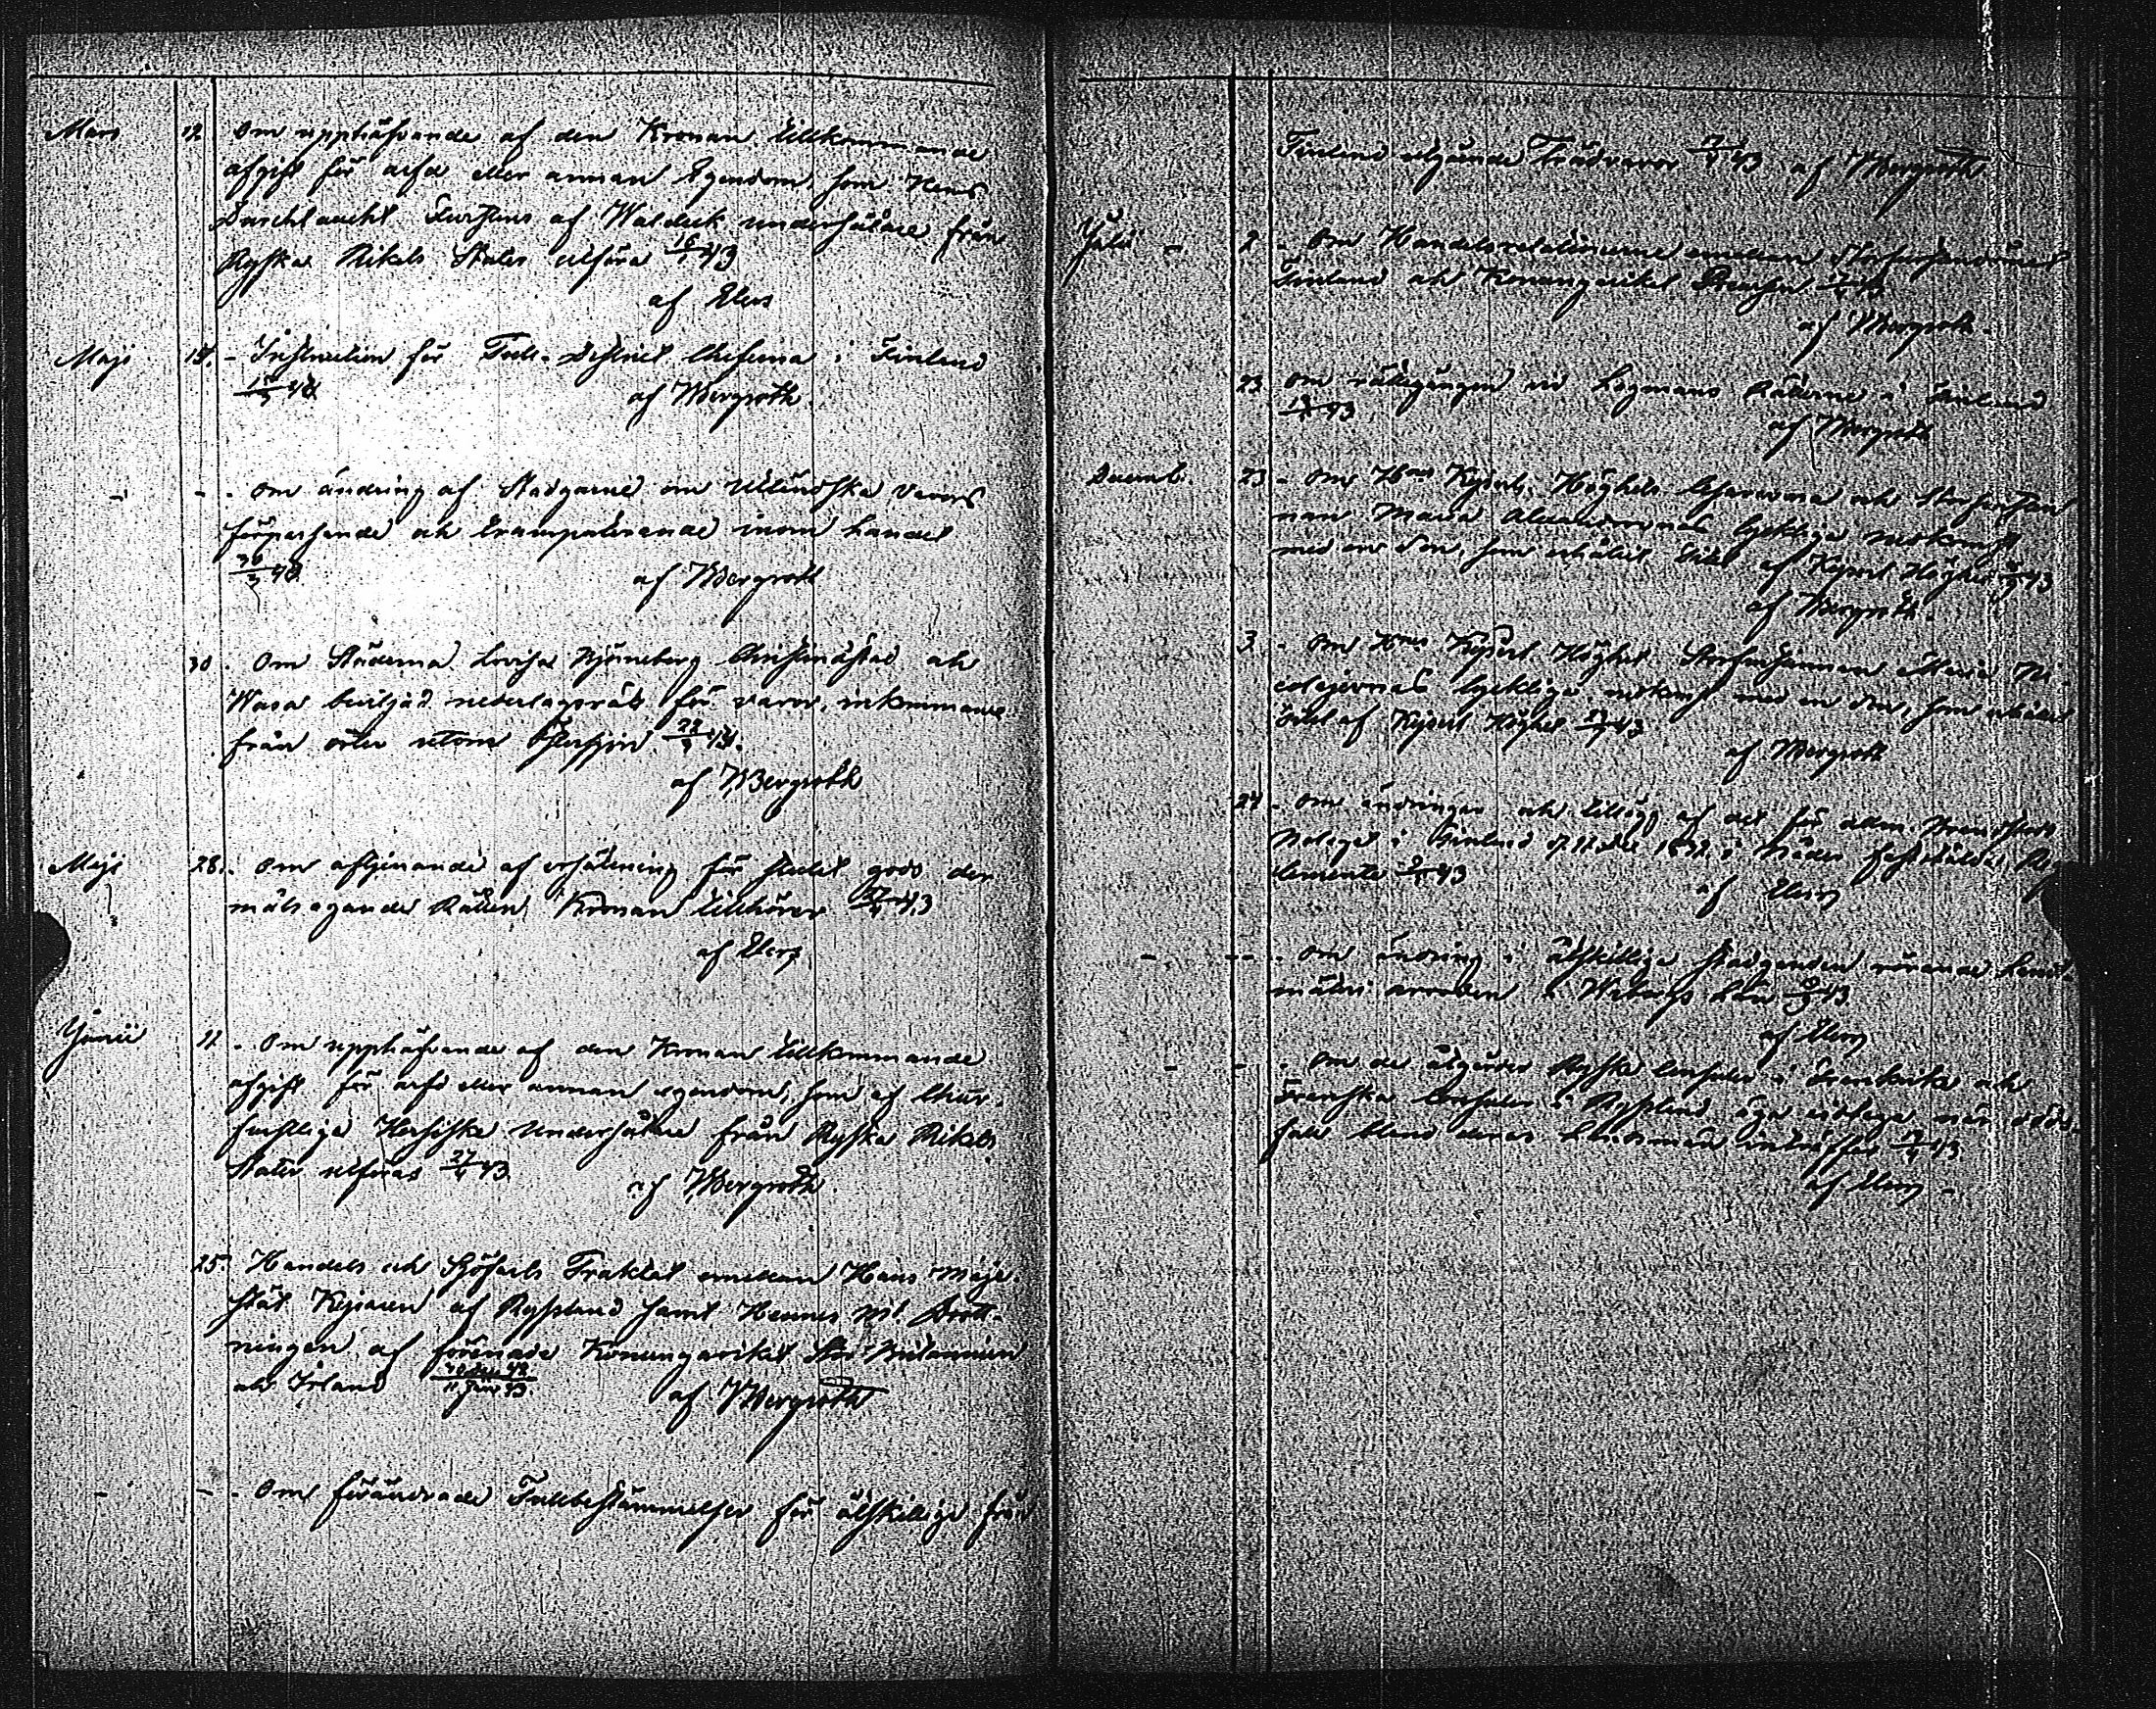 Mars 12. Om upphäfvande af den Kronan tillkommande
afgift för arfd eller annan Egendom, som Hans
Durchlaucht Furstens af Waldeck undersåtare från
Ryska Rikets Stater utföra 16/1 43
af Elers
Maji 15. - Instruction för Tull-District Cheferna i Finland
af WBergroth.
- - - Om ändring af Stadgarne om utländska varors
förpassande och transporterande inom Landet
30/3 43 af WBergroth
30. Om Städerna Lovisa Björneborg Christinæstad och
Wasa beviljad nederlagsrätt för varor, inkommande
från orter utom Östersjön
af WBergroth
Maji 28. - Om afgifvande af ersättning för stulet gods der
målsegande Rätten Kronan tillhörer 43
af Elers
Junii 11. - Om upphäfvande af den Kronan tillkommande
afgift för arfd eller annan egendom, som af Chur-
furstliga Hessiska Undersåtare från Ryska Rikets
Stater utföras 27/4 43. af WBergroth.
25. Handels och Sjöfarts Traktat emellan Hans Maje-
stät Kejsaren af Ryssland samt Hennes Mt. Drott-
ningen af förenade Konungariket Stor-Britannien
och Irland af WBergroth
- - - Om förändrade Tullbestämmelser för åtskillige från
Finland utgående Trädvaror 43 af WBergroth
Julii - 2 - Om Handelsrelationerne emellan Storfurstendömet
Finland och Konungariket Preussen
af WBergroth.
23 Om rättegången vid Lagmans Rätterne i Finland
43 af WBergroth
Decemb. 23 - Om Kejserl. Höghets Cesarevnas och Storfurstin-
nan Maria Alexandrovnas lyckliga nedkomst
med en Son, som erhållit Titel af Kejserl Höghet 43
af WBergroth.
3. - Om Kejserl Höghet Storfurstinnan Maria Ni-
colajevnas lyckliga nedkomst med en Son, som erhållit
titel af Kejserl Höghet 43
af WBergroth
24 - Om ändringar och tillägg af det för allm. Brandstods
Bolaget i Finland i Nåder faststälda Reg-
lemente 43
af Elers
- - - Om ändring i åtskillige stadganden rörande Land-
mäteri arvoden i Wiborgs Län 43
af Elers
- - - Om de åtgärder Ryska Consuler i Frankrike och
Franska Consuler i Ryssland äga vidtaga när döds-
fall bland deras Landsmän inträffar 43
af Elers -